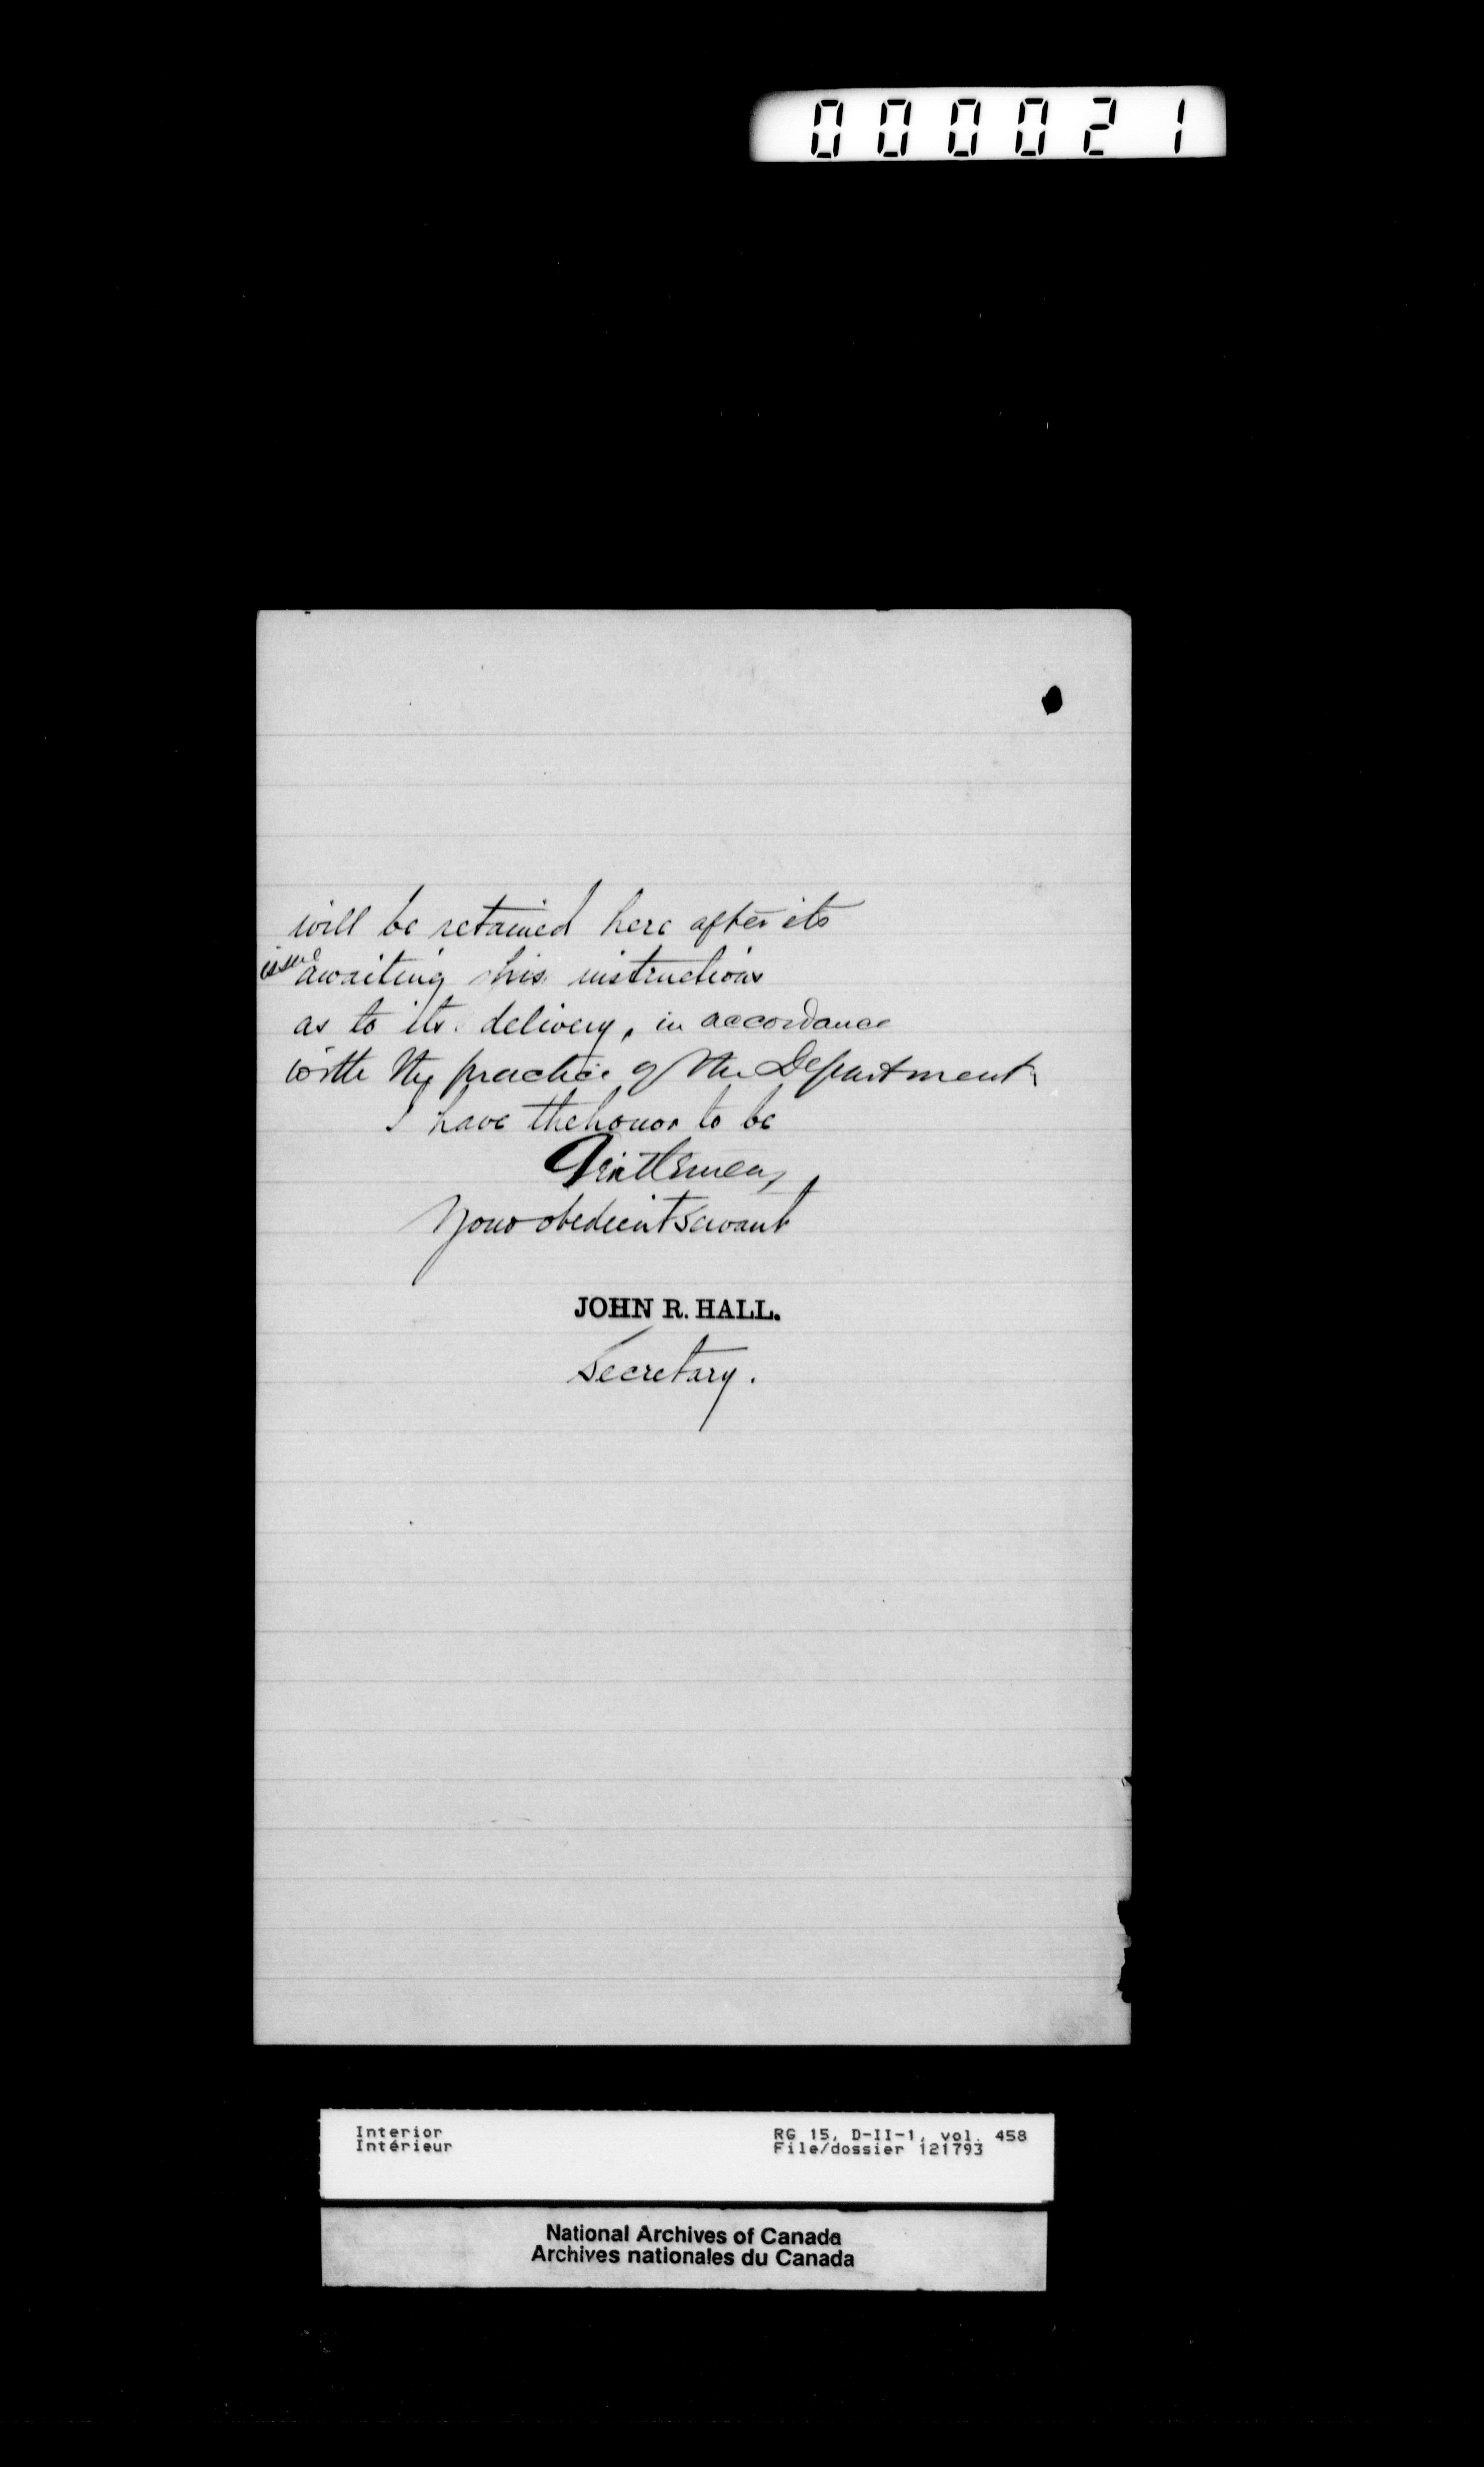 000021
will be retained here after its
issue awaiting his instructions
as to its delivery, in accordance
with the practice of the Department
I have the honor to be
Gentlemen,
Your obedient servant
JOHN R. HALL.
Secretary.
Interior RG 15, D-II-1, vol. 458
Intérieur File/dossier 121793
National Archives of Canada
Archives nationales du Canada